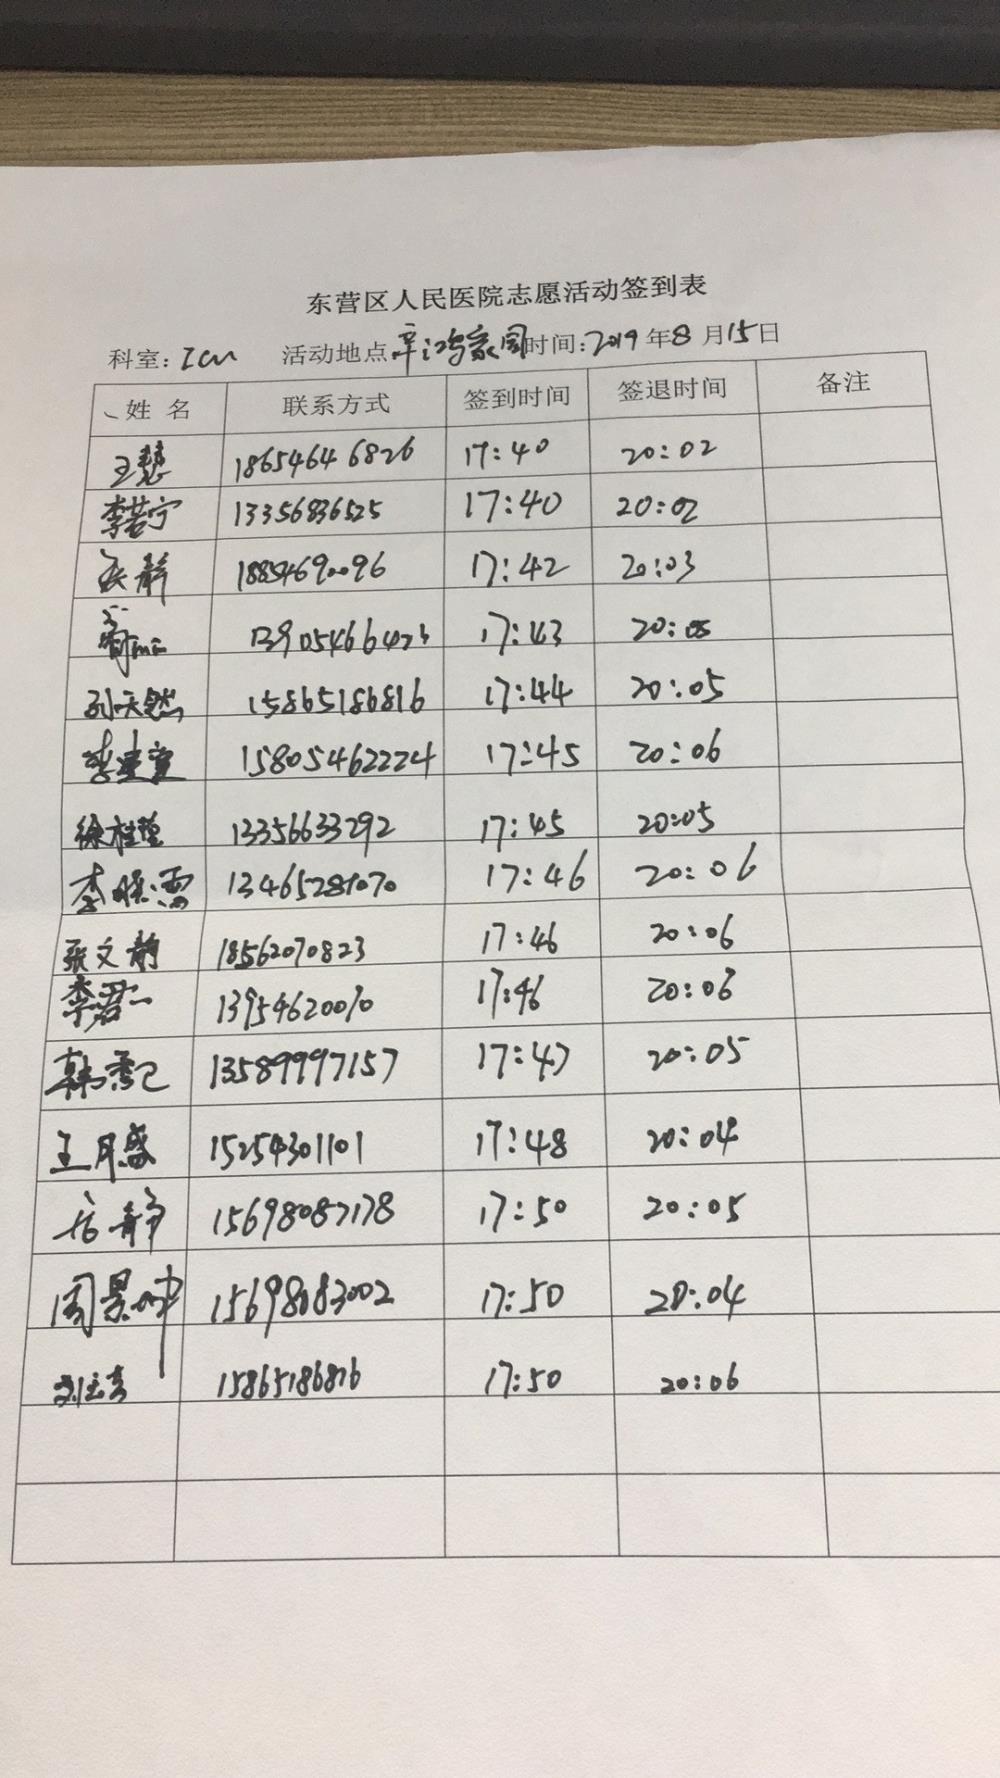 东营区人民医院志愿活动签到表
科室: ICU 活动地点 辛鸿家园 时间: 2019年8月15日
姓名 联系方式 签到时间 签退时间 备注
王慧 18654646826 17:40 20:02
李若宁 13356836525 17:40 20:02
张静 18854690096 17:42 20:03
13905466423 17:43 20:05
孙天然 15865186816 17:44 20:05
李建宽 15805462224 17:45 20:06
徐桂莲 13356633292 17:45 20:05
李晓雷 13465281070 17:46 20:06
张文静 18562070823 17:46 20:06
李君一 13954620070 17:46 20:06
韩秀记 13589997157 17:47 20:05
王月盛 15254301101 17:48 20:04
静 15698087178 17:50 20:05
周景坤 15698083002 17:50 20:04
刘 15865186816 17:50 20:06